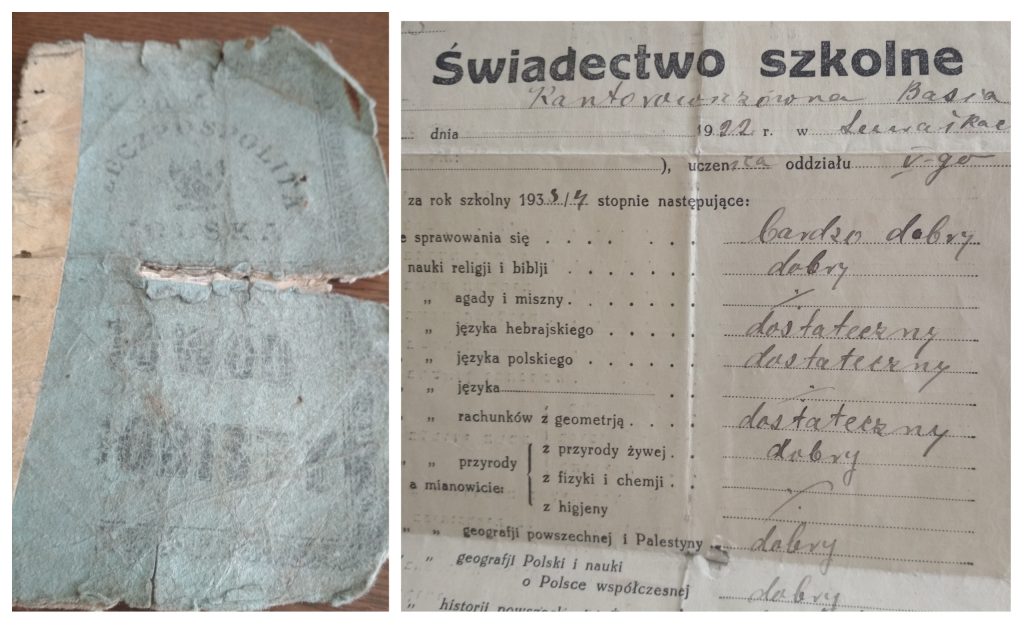 RZECZPOSPOLITA
POLSKA
DOWÓD
OSOBISTY
Świadectwo szkolne
Kantorowiczówna Basia
dnia 1922 r. w
), uczennica oddziału V-go
za rok szkolny 1933/4 stopnie następujące:
e sprawowania się bardzo dobry
nauki religji i biblji dobry
„ agady i miszny
„ języka hebrajskiego dostateczny
„ języka polskiego dostateczny
„ języka
„ rachunków z geometrją dostateczny
„ „ przyrody z przyrody żywej dobry
a mianowicie: z fizyki i chemji
z higjeny
„ „ geografji powszechnej i Palestyny dobry
„ geografji Polski i nauki
o Polsce współczesnej dobry
„ historji